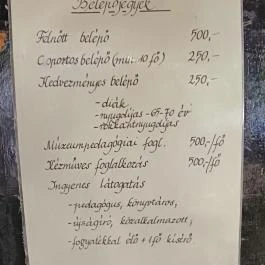 Belépőjegyek
Felnőtt belépő 500,-
Csoportos belépő (min. 10 fő) 250,-
Kedvezményes belépő 250,-
- diák
- nyugdíjas - 65-70 év
- rokkantnyugdíjas
Múzeumpedagógiai fogl. 500,-/fő
Kézműves foglalkozás 500,-/fő
Ingyenes látogatás
- pedagógus, könyvtáros,
- újságíró, közalkalmazott,
- fogyatékkal élő + 1 fő kísérő